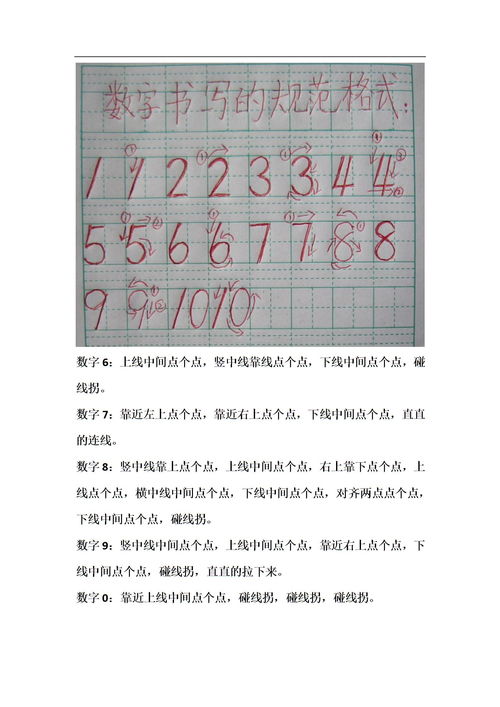 数字书写的规范格式:
1 1 2 2 3 3 4 4
5 5 6 6 7 7 8 8
9 9 10 10
数字 6：上线中间点个点，竖中线靠线点个点，下线中间点个点，碰
线拐。
数字 7：靠近左上点个点，靠近右上点个点，下线中间点个点，直直
的连线。
数字 8：竖中线靠上点个点，上线中间点个点，右上靠下点个点，上
线点个点，横中线中间点个点，下线中间点个点，对齐两点点个点，
下线中间点个点，碰线拐。
数字 9：竖中线中间点个点，上线中间点个点，靠近右上点个点，下
线中间点个点，碰线拐，直直的拉下来。
数字 0：靠近上线中间点个点，碰线拐，碰线拐，碰线拐。